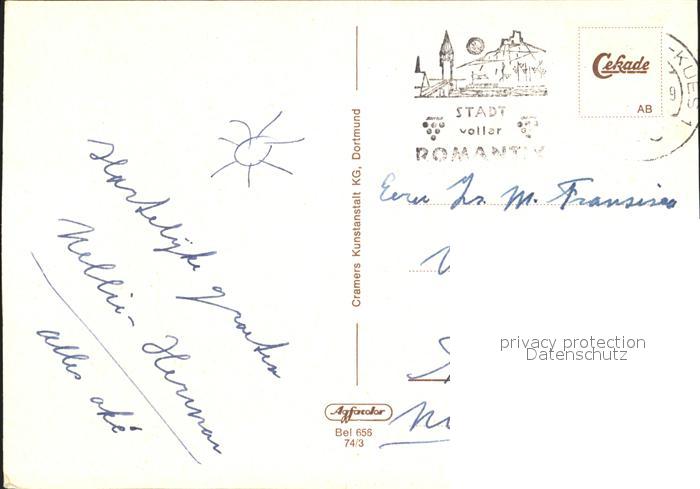 Hartelijke groeten
Nellie - Herman
alles oké
Cramers Kunstanstalt KG, Dortmund
Agfacolor
Bel 656
74/3
STADT
voller
ROMANTIK
-KUES 1
Cekade
AB
Eerw Zr. M. Fransisca
privacy protection
Datenschutz